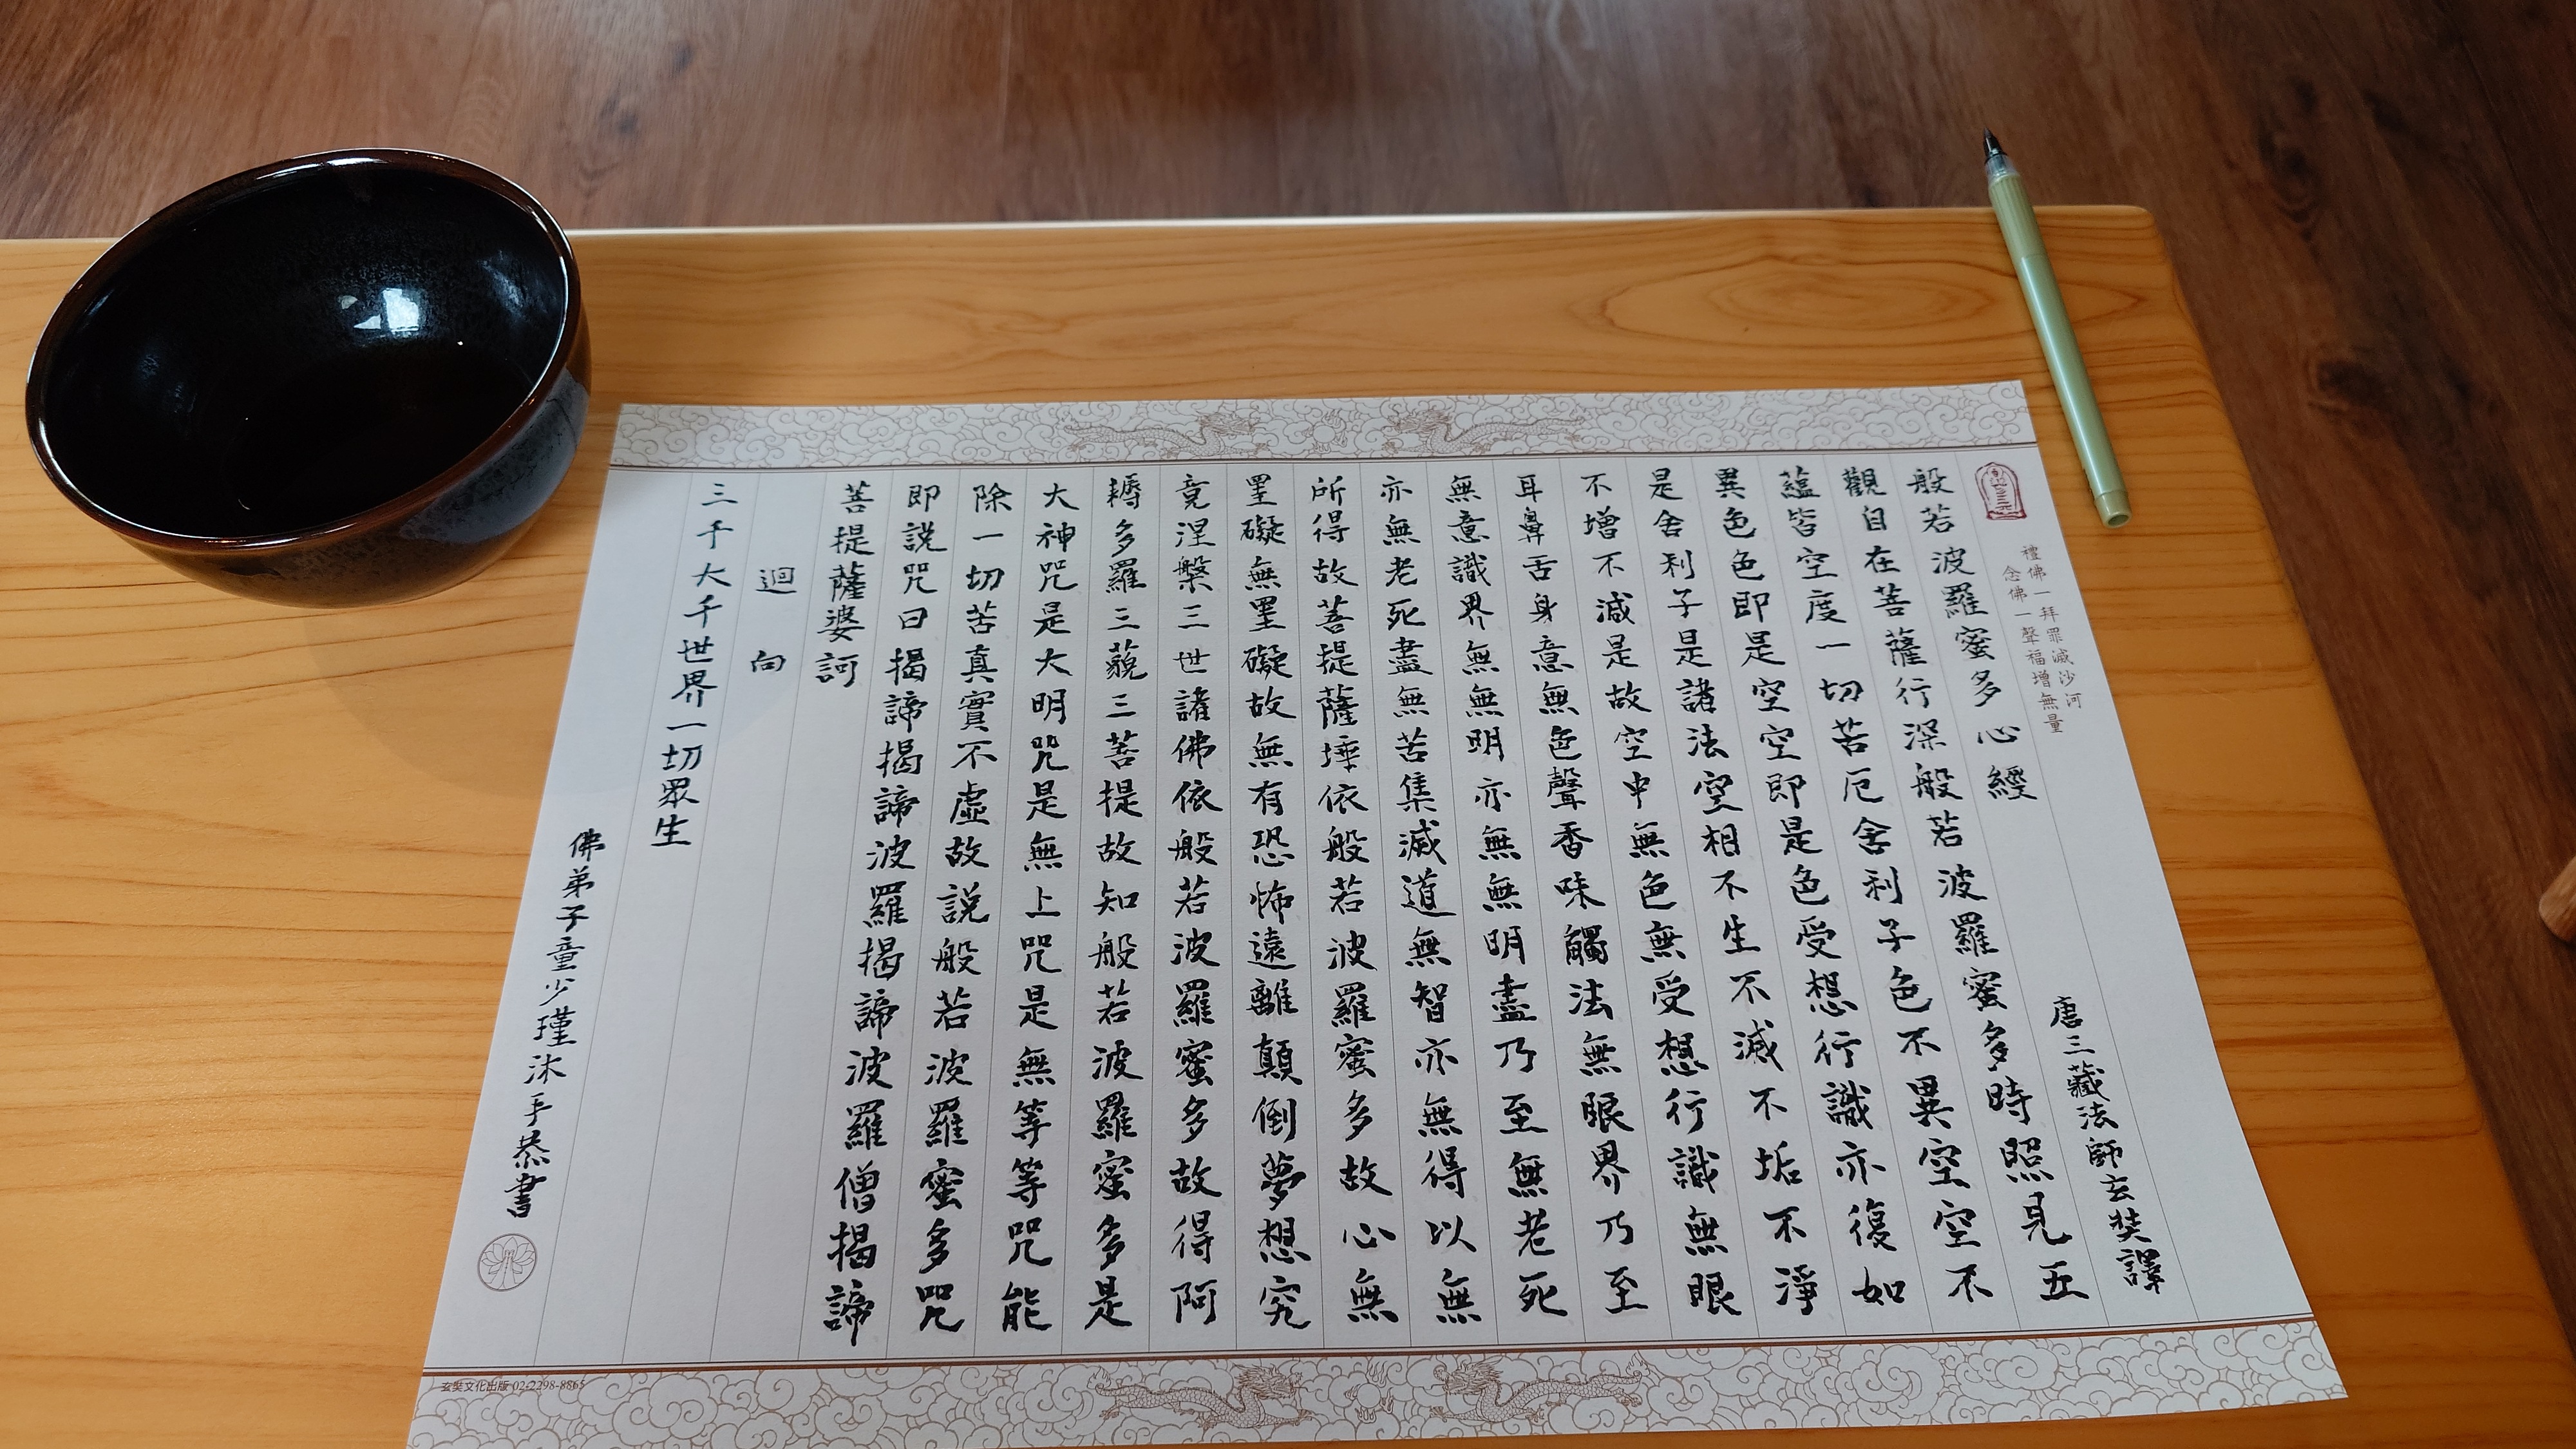 禮佛一拜罪滅沙河
念佛一聲福增無量
般若波羅蜜多心經
唐三藏法師玄奘譯
觀自在菩薩行深般若波羅蜜多時照見五
蘊皆空度一切苦厄舍利子色不異空空不
異色色即是空空即是色受想行識亦復如
是舍利子是諸法空相不生不滅不垢不淨
不增不減是故空中無色無受想行識無眼
耳鼻舌身意無色聲香味觸法無眼界乃至
無意識界無無明亦無無明盡乃至無老死
亦無老死盡無苦集滅道無智亦無得以無
所得故菩提薩埵依般若波羅蜜多故心無
罣礙無罣礙故無有恐怖遠離顛倒夢想究
竟涅槃三世諸佛依般若波羅蜜多故得阿
耨多羅三藐三菩提故知般若波羅蜜多是
大神咒是大明咒是無上咒是無等等咒能
除一切苦真實不虛故說般若波羅蜜多咒
即說咒曰揭諦揭諦波羅揭諦波羅僧揭諦
菩提薩婆訶
迴向
三千大千世界一切眾生
佛弟子童少瑾沐手恭書
玄奘文化出版 02-2298-8865